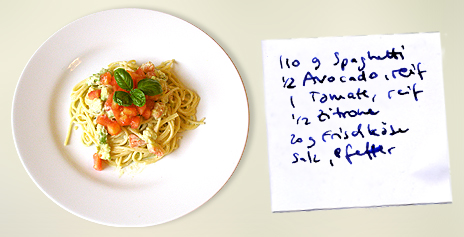 110 g Spaghetti
1/2 Avocado, reif
1 Tomate, reif
1/2 Zitrone
20 g Frischkäse
Salz, Pfeffer